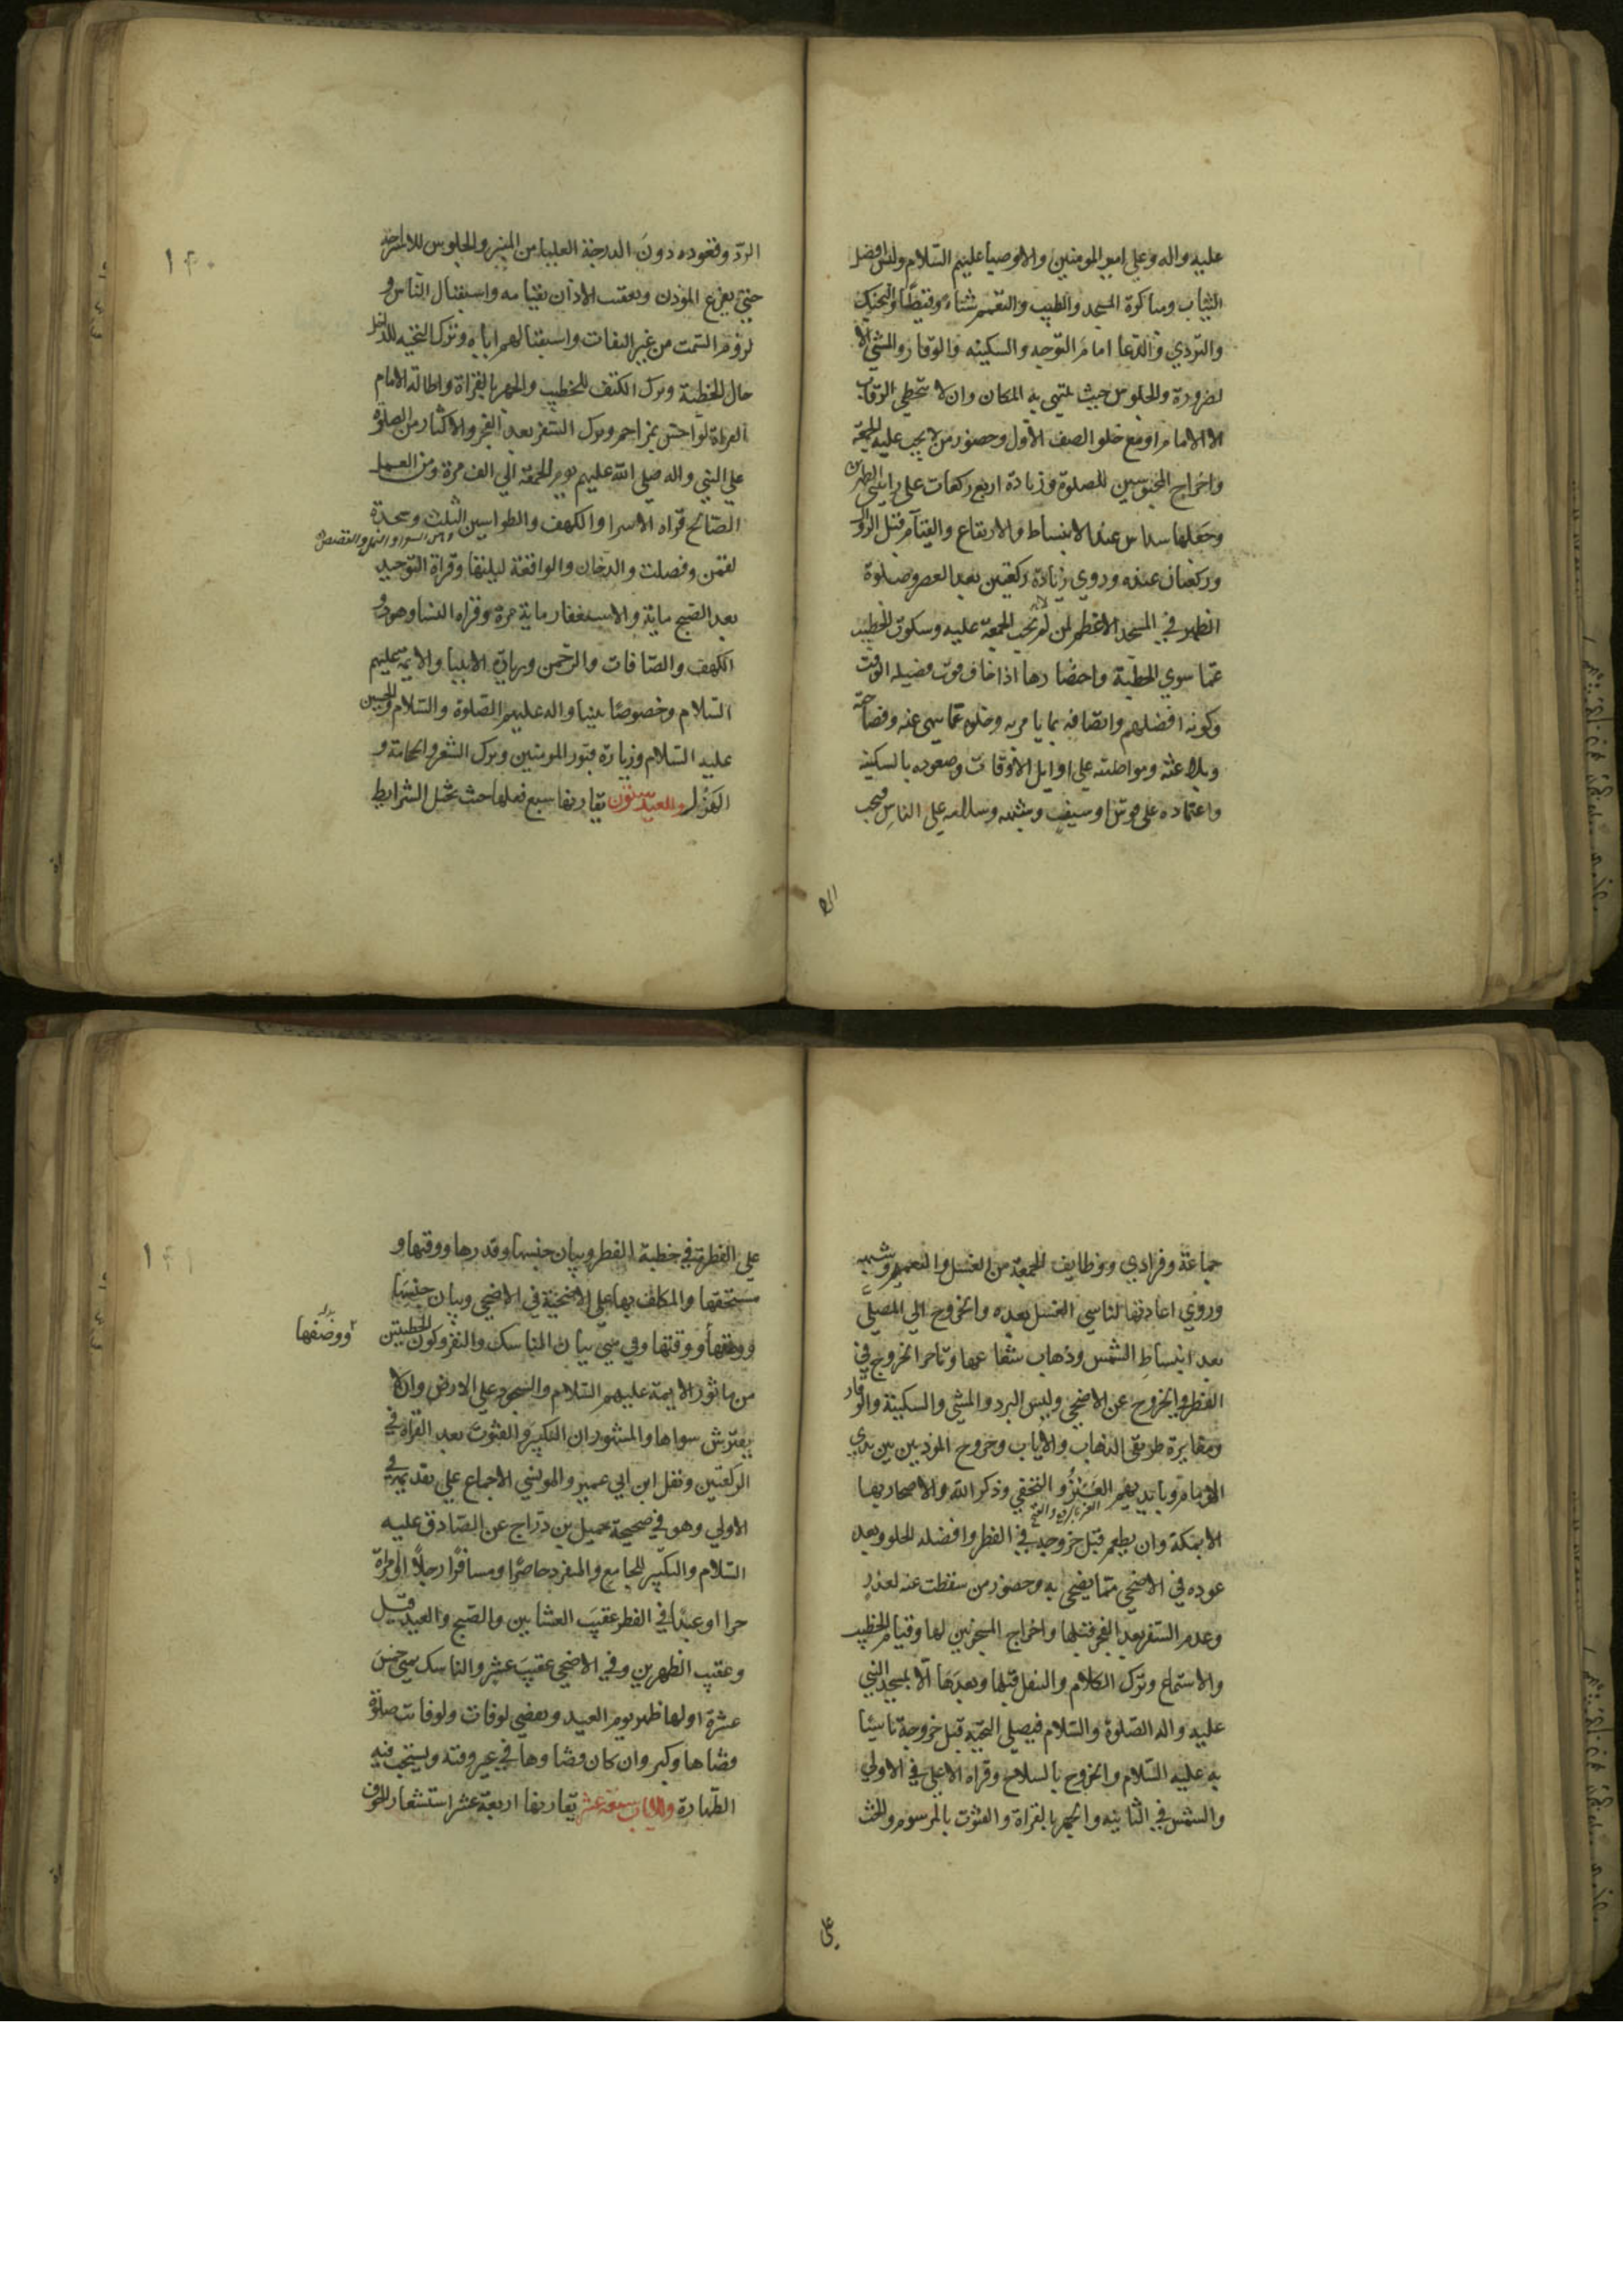 عليه واله وعلي امير المومنين والاوصيا عليهم السّلام ولبس افضل
الثياب ومباكرة المسجد والطيب والتعمم شتاء وقيظًا والتحنك
والتردي والدّعا امام التوجه والسكينه والوقار والمشي الا
لضرورة والجلوس حيث ينتهي به المكان وان لا يتخطي الرقاب
الا الامام او مع خلو الصف الاول وحضور من لا يجب عليه الجمعة
واخراج المحبوسين للصلوة وزيادة اربع ركعات علي راتبتي الظهرين
وجعلها سداس عند الانبساط والارتفاع والقيام قبل الزوال
وركعتان عنده وروي زيادة ركعتين بعد العصر وصلوة
الظهر في المسجد الاعظم لمن لم تجب الجمعة عليه وسكوت الخطيب
عمّا سوي الخطبة واحضارها اذا خاف فوت فضيله الوقت
وكونه افضلهم واتصافه بما يامر به وخلوه عمّا ينهي عنه وفصاحته
وبلاغته ومواظبته علي اوايل الاوقات وصعوده بالسكينه
واعتماده علي قوس او سيف وشبهه وسلامه علي الناس فيجب
الرد
الردّ وقعوده دون الدرجة العليا من المنبر والجلوس للاستراحة
حتي يفرغ الموذن وتعقب الاذان بقيامه واستقبال الناس و
لزوم السّمت من غير التفات واستقبالهم اياه وترك التحيه للداخل
حال الخطبة وترك الكتف للخطيب والجهر بالقراة واطالة الامام
القراة لو احسّ بمزاحم وترك السّفر بعد الفجر والاكثار من الصلوة
علي النبي واله صلي الله عليهم يوم الجمعة الي الف مرة ومن العمل
الصّالح قراه الاسرا والكهف والطواسين الثلث وسجدة
وهن الشعرا والنمل والقصص
لقمن وفصلت والدّخان والواقعة ليلتها وقراة التوحيد
بعد الصّبح ماية والاستغفار ماية مرة وقراه النسا وهود و
الكهف والصّافات والرّحمن وزيارة الانبيا والايمّة عليهم
السّلام وخصوصًا نبينا واله عليهم الصّلوة والسّلام والحسين
عليه السّلام وزيارة قبور المومنين وترك الشعر والحجامة و
الهزل والعيد ستون يقارنها سبع فعلها حيث تختل الشرايط
١٤٠
جماعة وفرادي ووظايف الجمعة من الغسل والتعمم وشبهه
وروي اعادتها لناسي الغسل بعده والخروج الي المصلّي
بعد انبساط الشمس وذهاب شعاعها وتاخر الخروج في
الفطر والخروج عن الاضحي ولبس البرد والمشي والسكينة والوقار
ومغايرة طريقي الذهاب والاياب وخروج الموذنين بين يدي
الامام وبايديهم العنز والتحفي وذكر الله والاصحار بها
الا بمكة وان يطعم قبل خروجه في الفطر وافضله الحلو وبعد
عوده في الاضحي ممّا يضحي به وحضور من سقطت عنه لعذر
وعدم السّفر بعد الفجر قبلها واخراج المسجونين لها وقيام الخطيب
والاستماع وترك الكلام والنفل قبلها وبعدها الّا بمسجد النبي
عليه واله الصّلوة والسّلام فيصلي التحيّه قبل خروجه تاسّيا
به عليه السّلام والخروج بالسلاح وقراه الاعلي في الاولي
والشمس في الثانيه والجهر بالقراة والقنوت بالمرسوم والحث
علي
علي الفطرة في خطبة الفطر وبيان جنسها وقدرها ووقتها و
مستحقها والمكلف بها علي الاضحيّة في الاضحي وبيان جنسها
ووصفها ووقتها وفي مني بيان المناسك والنفر وكون الخطبتين
ووصفها
من ماثور الايمة عليهم السّلام والسّجود علي الارض وان لا
يفترش سواها والمشهور ان التكبير والقنوت بعد القراة في
الركعتين ونقل ابن ابي عمير والمونسي الاجماع علي تقديمه في
الاولي وهو في صحيحة جميل بن درّاج عن الصّادق عليه
السّلام والتكبير للجامع والمنفرد حاضرًا ومسافرًا رجلاً او امراة
حرا او عبدًا في الفطر عقيب العشايين والصّبح والعيد قيل
وعقيب الظهرين وفي الاضحي عقيب عشر والناسك بمني خمس
عشرة اولها ظهر يوم العيد ويقضي لو فات ولو فاتت صلوة
قضاها وكبر وان كان قضاوها في غير وقته ويستحب فيه
الطّهارة والايات سبعة عشر يقارنها اربعة عشر استشعار الخوف